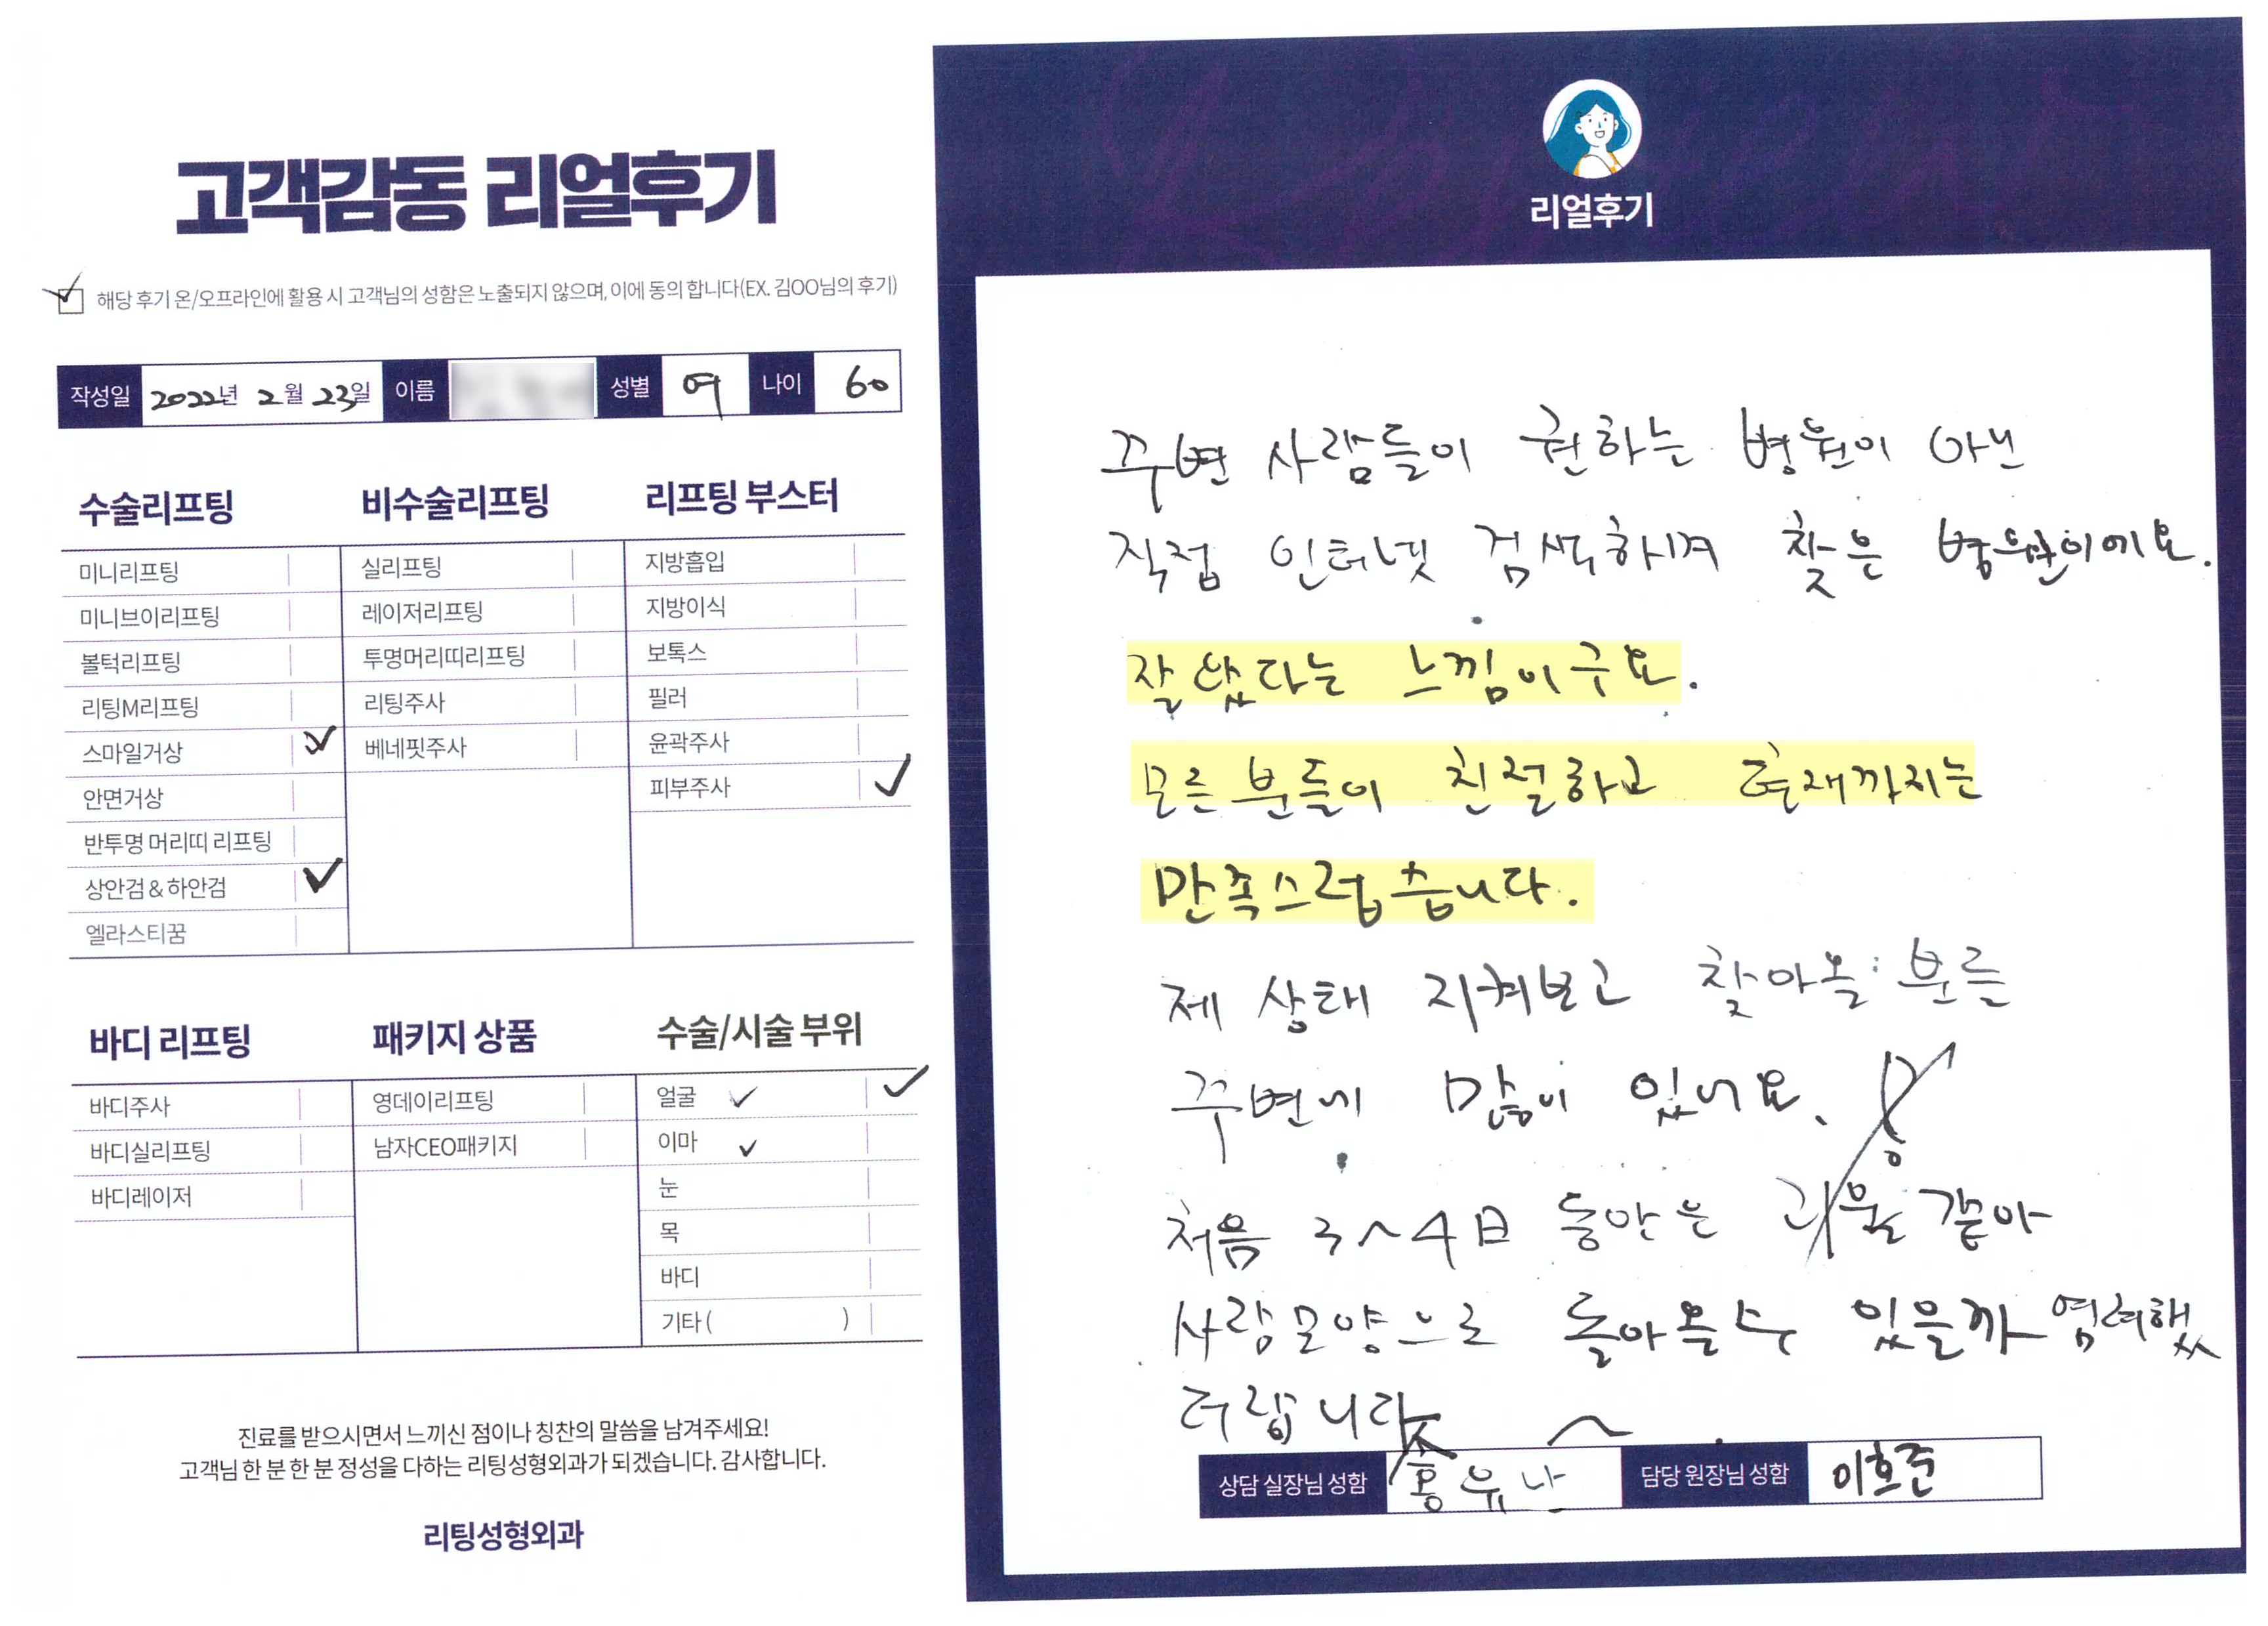 고객감동 리얼후기
해당 후기 온/오프라인에 활용 시 고객님의 성함은 노출되지 않으며, 이에 동의 합니다(EX. 김OO님의 후기)
작성일 2022년 2월 23일 이름 성별 여 나이 60
수술리프팅
미니리프팅
미니브이리프팅
볼턱리프팅
리팅M리프팅
스마일거상
안면거상
반투명 머리띠 리프팅
상안검&하안검
엘라스티꿈
비수술리프팅
실리프팅
레이저리프팅
투명머리띠리프팅
리팅주사
베네핏주사
리프팅 부스터
지방흡입
지방이식
보톡스
필러
윤곽주사
피부주사
바디 리프팅
바디주사
바디실리프팅
바디레이저
패키지 상품
영데이리프팅
남자CEO패키지
수술/시술 부위
얼굴
이마
눈
목
바디
기타 ( )
진료를 받으시면서 느끼신 점이나 칭찬의 말씀을 남겨주세요!
고객님 한 분 한 분 정성을 다하는 리팅성형외과가 되겠습니다. 감사합니다.
리팅성형외과
리얼후기
주변 사람들이 권하는 병원이 아닌
직접 인터넷 검색하여 찾은 병원이에요.
잘했다는 느낌이구요.
모든 분들이 친절하고 현재까지는
만족스럽습니다.
제 상태 지켜보고 찾아올 분들
주변에 많이 있어요.
처음 3~4日 동안은 괴물 같아
사람모양으로 돌아올수 있을까 염려했
더랍니다
상담 실장님 성함 홍유나 담당 원장님 성함 이호준